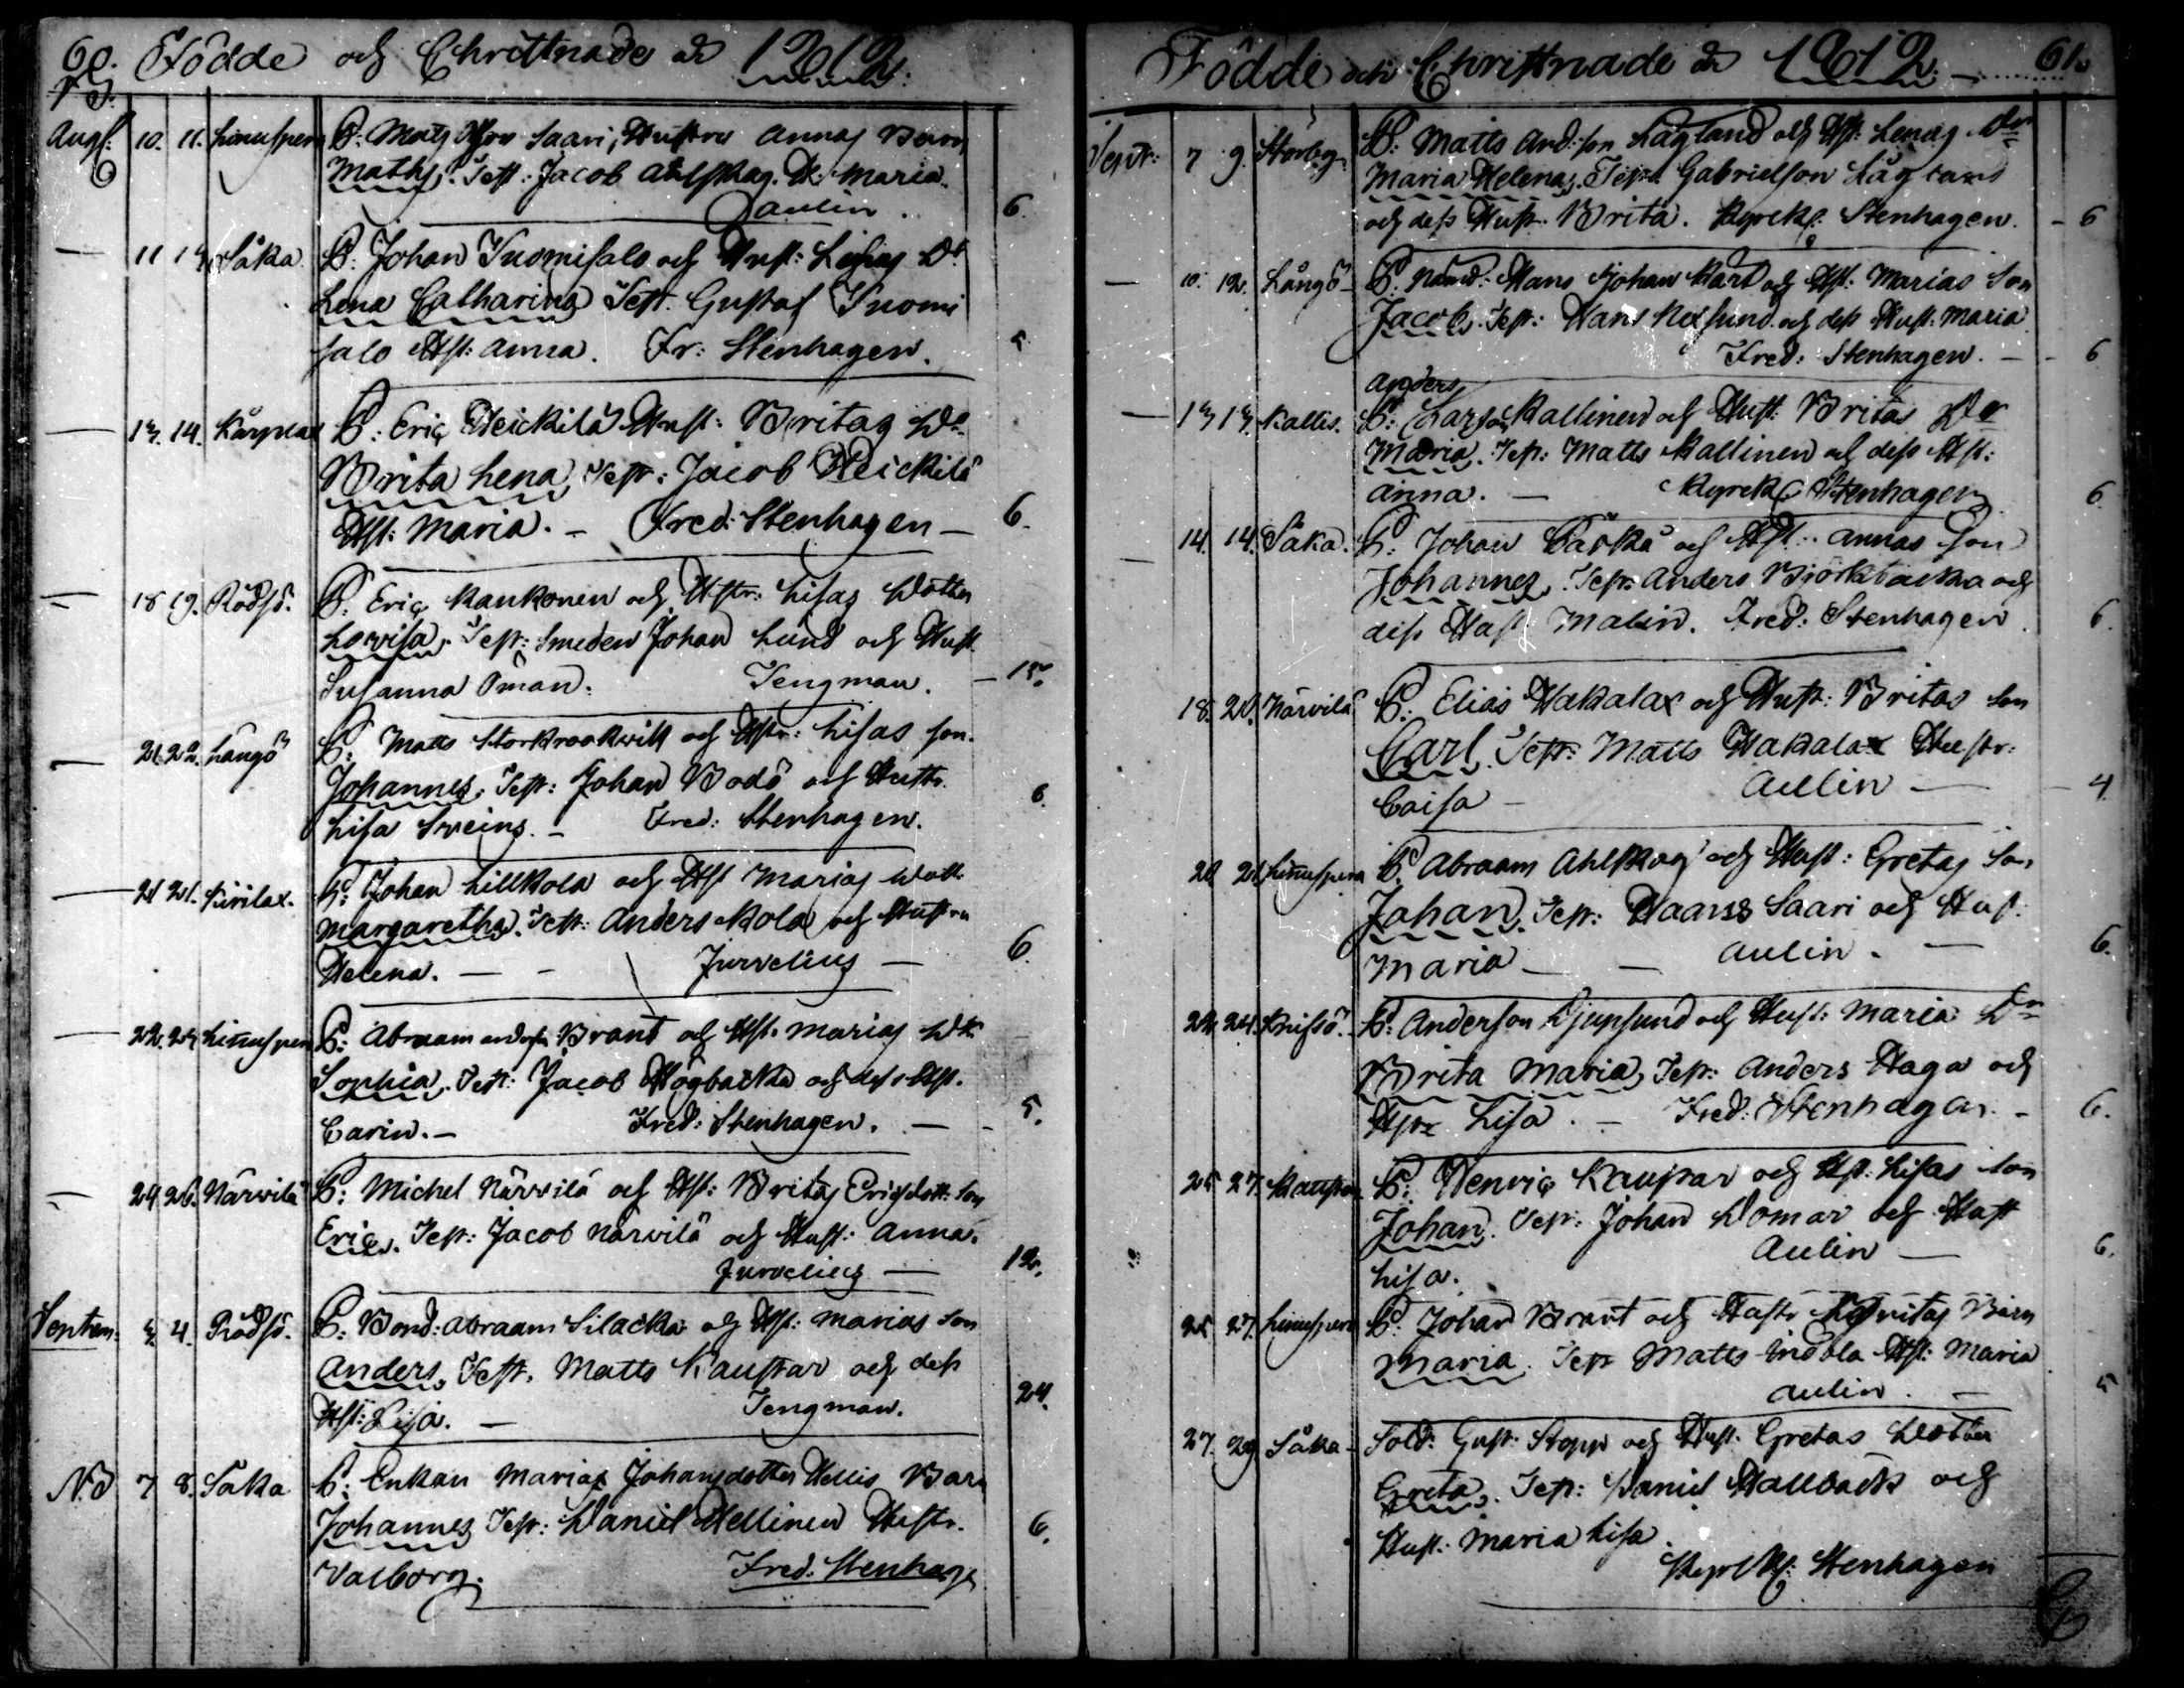 60. Födde och Christnade år 1812.
Aug: 10. 11. Linnusperä B: Mats Saari, Hustru Annas Barn
Maths. Test: Jacob Ahlskog. D. Maria
Aulin. 6.
— 11 13 Såka B: Johan Tuomisalo och Hust: Lisas Dr
Lena Catharina Test. Gustaf Tuomi
salo Hst: Anna. Fr: Stenhagen. 5
— 13. 14. Karplax B: Eric Heickilä Hust: Britas Dr
Brita Lena, Test: Jacob Heickilä
Hst: Maria. — Fred: Stenhagen — 6.
— 18 19. Rödsö. B: Eric Kankonen och Hstr: Lisas Dotter
Lovisa. Test: Smeden Johan Lund och Hust
Susanna Öman. Tengman. — 12.
— 21. 22. Långö B: Matts Storkrookvik och Hstr: Lisas son
Johannes. Test: Johan Bodö och Hustr.
Lisa Sveins. — Fred: Stenhagen. 6.
— 21 21. Kirilax. B: Johan Lillkola och Hst Marias Dott.
Margaretha. Test: Anders Kola och Hustru
Helena. — — Jurvelius — 6.
— 22. 23 Linnusperä B: Abraam Brant och Hst. Marias Dr
Sophia. Test: Jacob Högbacka och dess Hst.
Carin. — Fred: Stenhagen. — 5.
— 24 26. Närvilä B: Michel Närvilä och Hst: Britas Ericsdott: Son
Eric. Test: Jacob Närvilä och Hust: Anna.
Jurvelius — 12.
Septem: 3. 4. Rödsö. B: Bond: Abraam Silacka och Hst: Marias Son
Anders. Test. Matts Kaustar och dess
Hst: Lisa. — Tengman. 24.
N.B 7 8. Såka B: Enkan Marias Johansdotter Hellis Barn
Johannes Test: Daniel Hellinen Hustr.
Valborg. Fred: Stenhage
6.
Födde och Christnade år 1812. — 61.
Sept: 7 9. Storby B: Matts And:son Lågland och Hst: Lenas Dr
Maria Helena. Test. Gabrielson Lågland
och dess Hust. Brita. Kyrck. Stenhagen. — 6
— 10. 12. Långö B. Nämd: Hans Johan Kart och Hst: Marias Son
Jacob. Test: Hans och dess Hust: Maria
Fred: Stenhagen. — 6
Anders
— 13 13. Kallis. B: Larson Kallinen och Hust: Britas Dr
Maria. Test: Matts Kallinen och dess Hst:
Anna. — Kyrck Stenhagen 6.
14. 14. Såka. B. Johan och Hst: Annas son
Johannes. Test. Anders Björkbacka och
dess Hust Malin. Fred: Stenhagen. 6.
18. 20. Närvilä B: Elias Hakalax och Hust: Britas son
Carl. Test: Matts Hakalax Hustr:
Caisa — Aulin — 4.
20. 21. Linnusperä B. Abraam Ahlskog och Hust: Gretas Son
Johan. Test: Haans Saari och Hust.
Maria — — Aulin. — 6.
24. Knifsö. B: Anderson Djupsund och Hust: Maria Dr
Brita Maria, Test: Anders Haga och
Hstr Lisa. — Fred: Stenhagen. — 6.
25 27. Kaustar B: Henric Kaustar och Hst: Lisas son
Johan. Test. Johan Domar och Hust
Lisa. Aulin — 6.
25 27. Linnusperä B: Johan Brant och Hustr Barn
Maria. Test Matts Indola Hst: Maria
Aulin. — 5
27. 29. Såka — Sold. Gust. Stopp och Hust. Gretas Dotter
Greta. Test: Daniel Hallback och
Hust. Maria Lisa.
Stenhagen